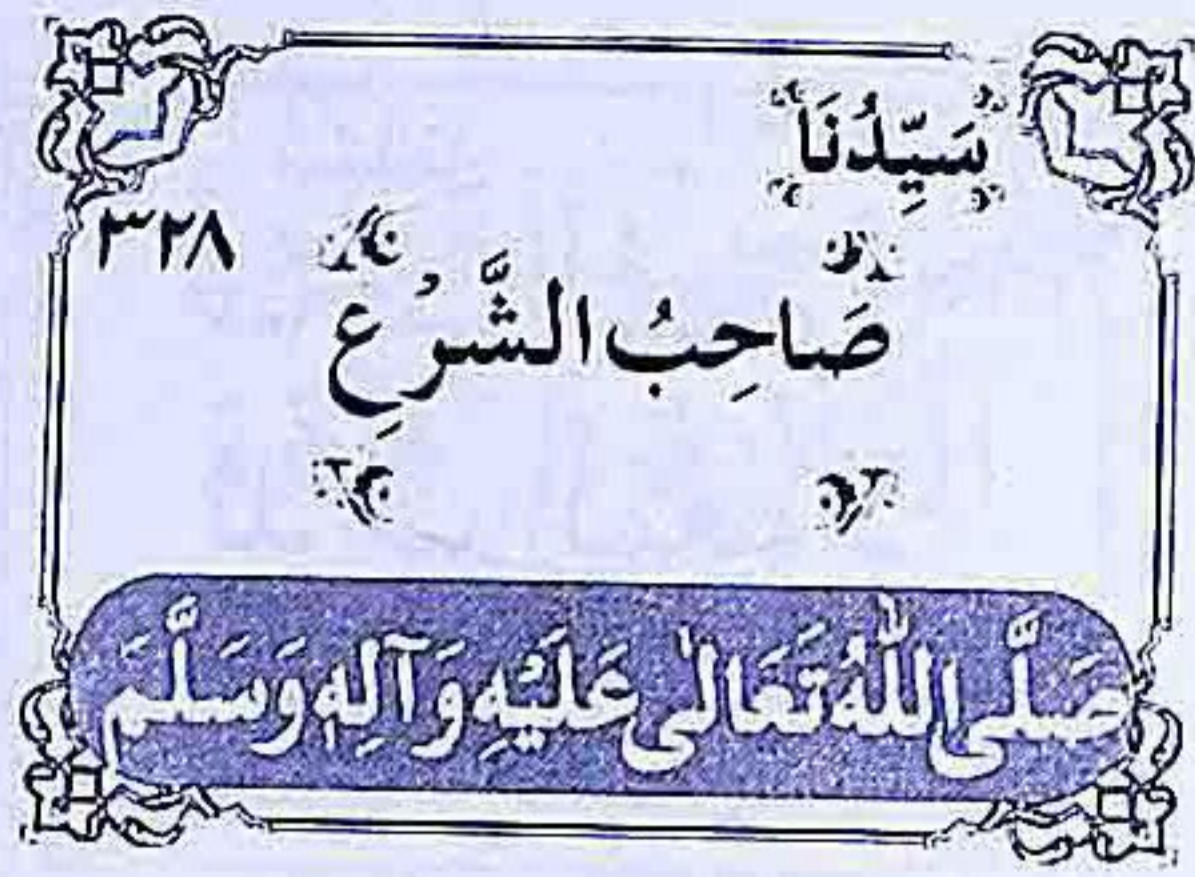 سَيِّدُنَا
٣٢٨
صَاحِبُ الشَّرْعِ
صَلَّى اللّٰهُ تَعَالٰى عَلَيْهِ وَآلِهٖ وَسَلَّمَ